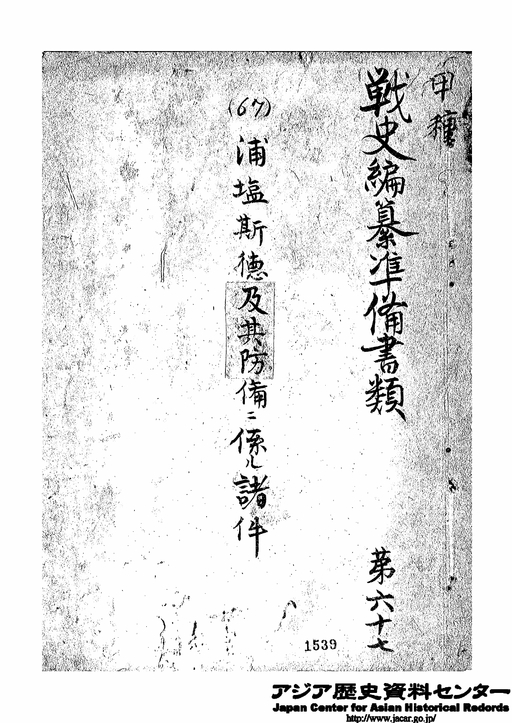 甲種
戦史編纂準備書類 第六十七
(67)
浦塩斯德及其防備ニ係ル諸件
1539
アジア歴史資料センター
Japan Center for Asian Historical Records
http://www.jacar.go.jp/